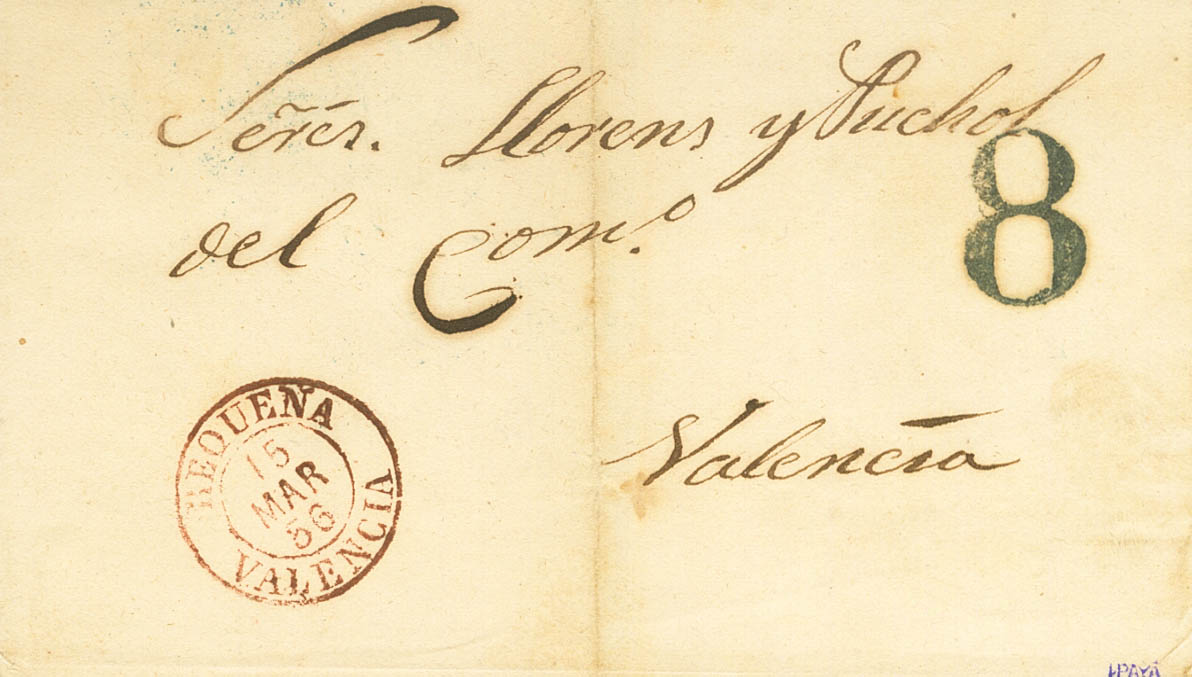 Señres. Llorens y Puchol
8
del Com.º
REQUENA
15
MAR
56
VALENCIA
Valencia
PAYÁ